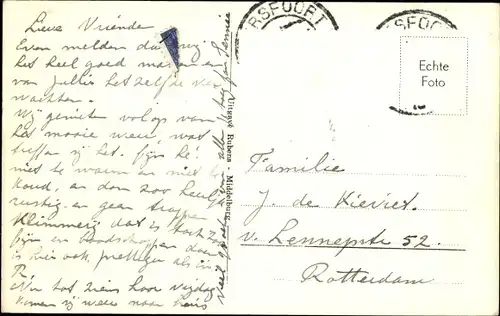 Lieve Vrienden
Even melden dat wij
het heel goed maken en
van jullie het zelfde ver
wachten.
Wij genieten volop van
het mooie weer, wat
treffen wij het. fijn hé!
niet te warm en niet te
koud, en dan zoo heerlijk
rustig en geen trappen
klimmerij dat is toch zoo
fijn en boodschappen doen
is hier ook prettiger als in
R.
Nu tot ziens hoor vrijdag
komen wij weer naar huis
Veel groeten van allen
Uitgave Rubens - Middelburg
RSFOORT
SFOORT
Echte
Foto
Familie
J. de Kieviet.
v. Lennepstr 52.
Rotterdam